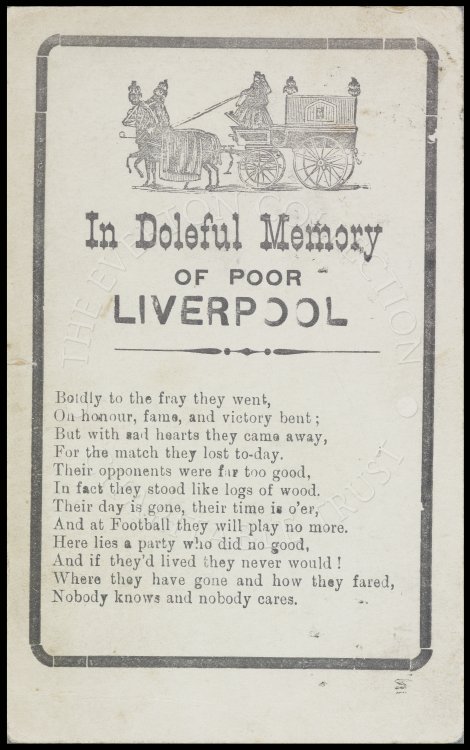 In Doleful Memory
OF POOR
LIVERPOOL
Boldly to the fray they went,
On honour, fame, and victory bent;
But with sad hearts they came away,
For the match they lost to-day.
Their opponents were far too good,
In fact they stood like logs of wood.
Their day is gone, their time is o'er,
And at Football they will play no more.
Here lies a party who did no good,
And if they'd lived they never would!
Where they have gone and how they fared,
Nobody knows and nobody cares.
THE EVERTON COLLECTION
TRUST